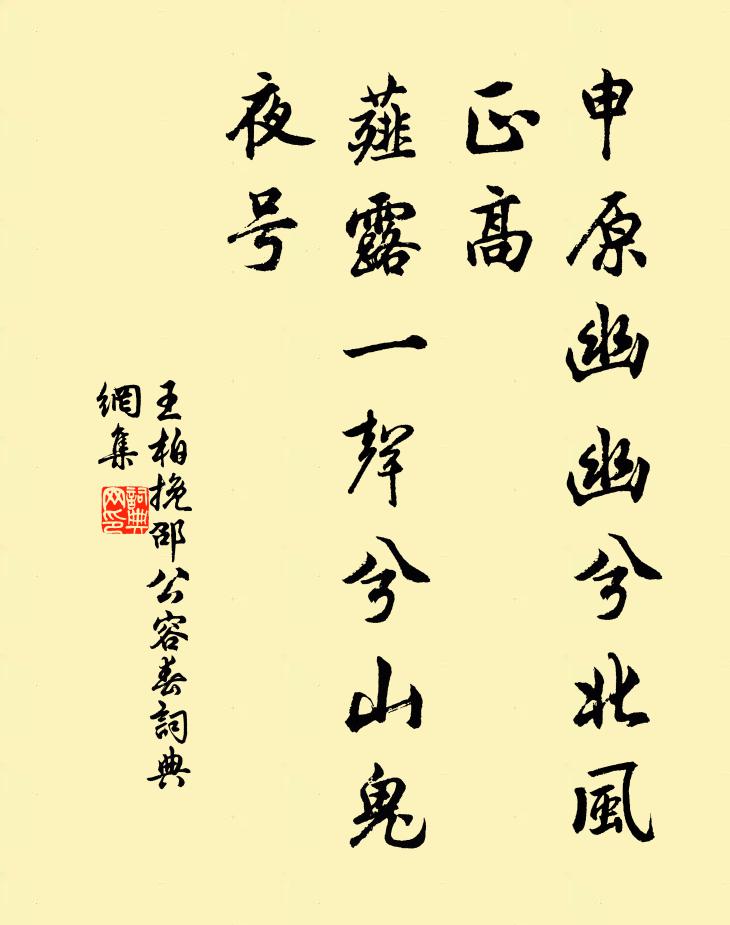 申原幽幽兮北風
正高
薤露一聲兮山鬼
夜号
王柏挽邵公容春詞典
網集
詞典網印